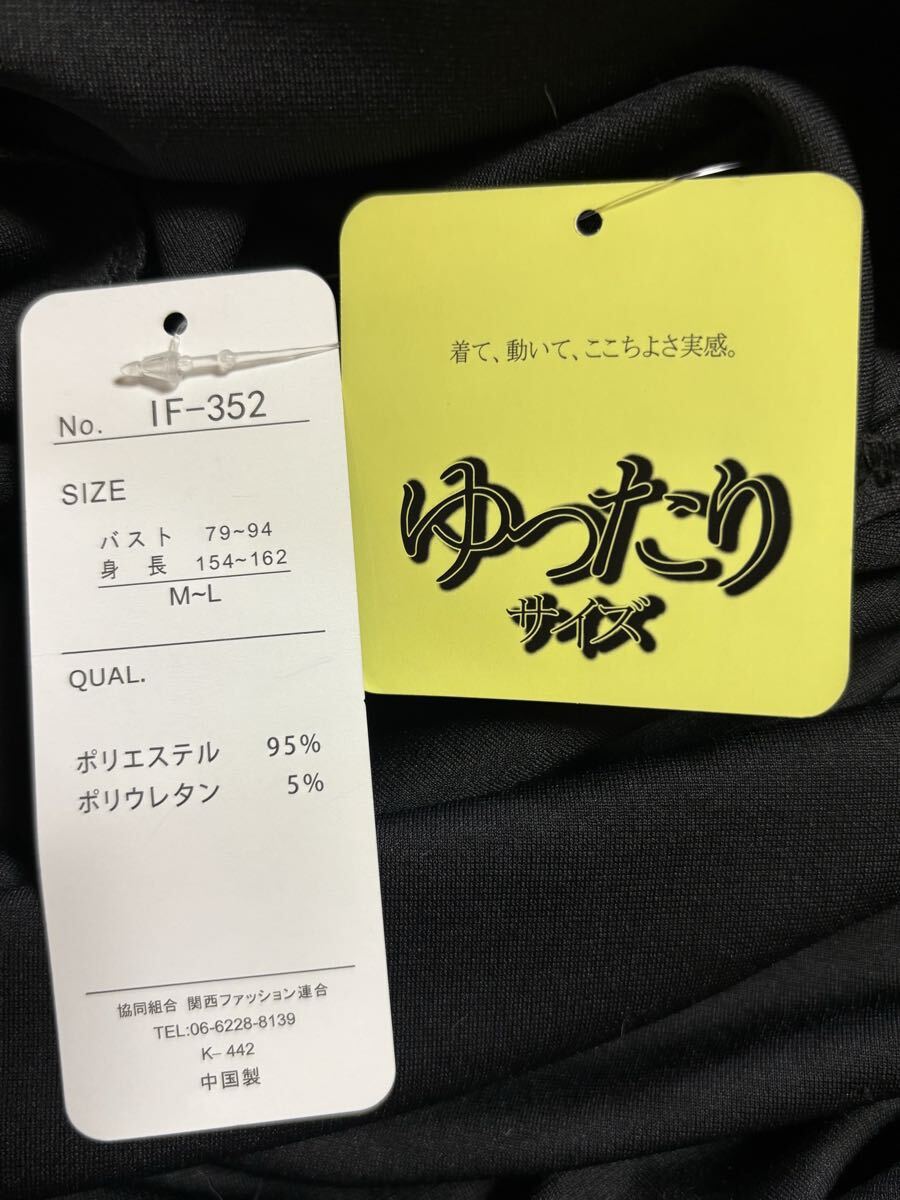 No. IF-352
SIZE
バスト 79~94
身長 154~162
M~L
QUAL.
ポリエステル 95%
ポリウレタン 5%
協同組合 関西ファッション連合
TEL:06-6228-8139
K-442
中国製
着て、動いて、ここちよさ実感。
ゆったり
サイズ